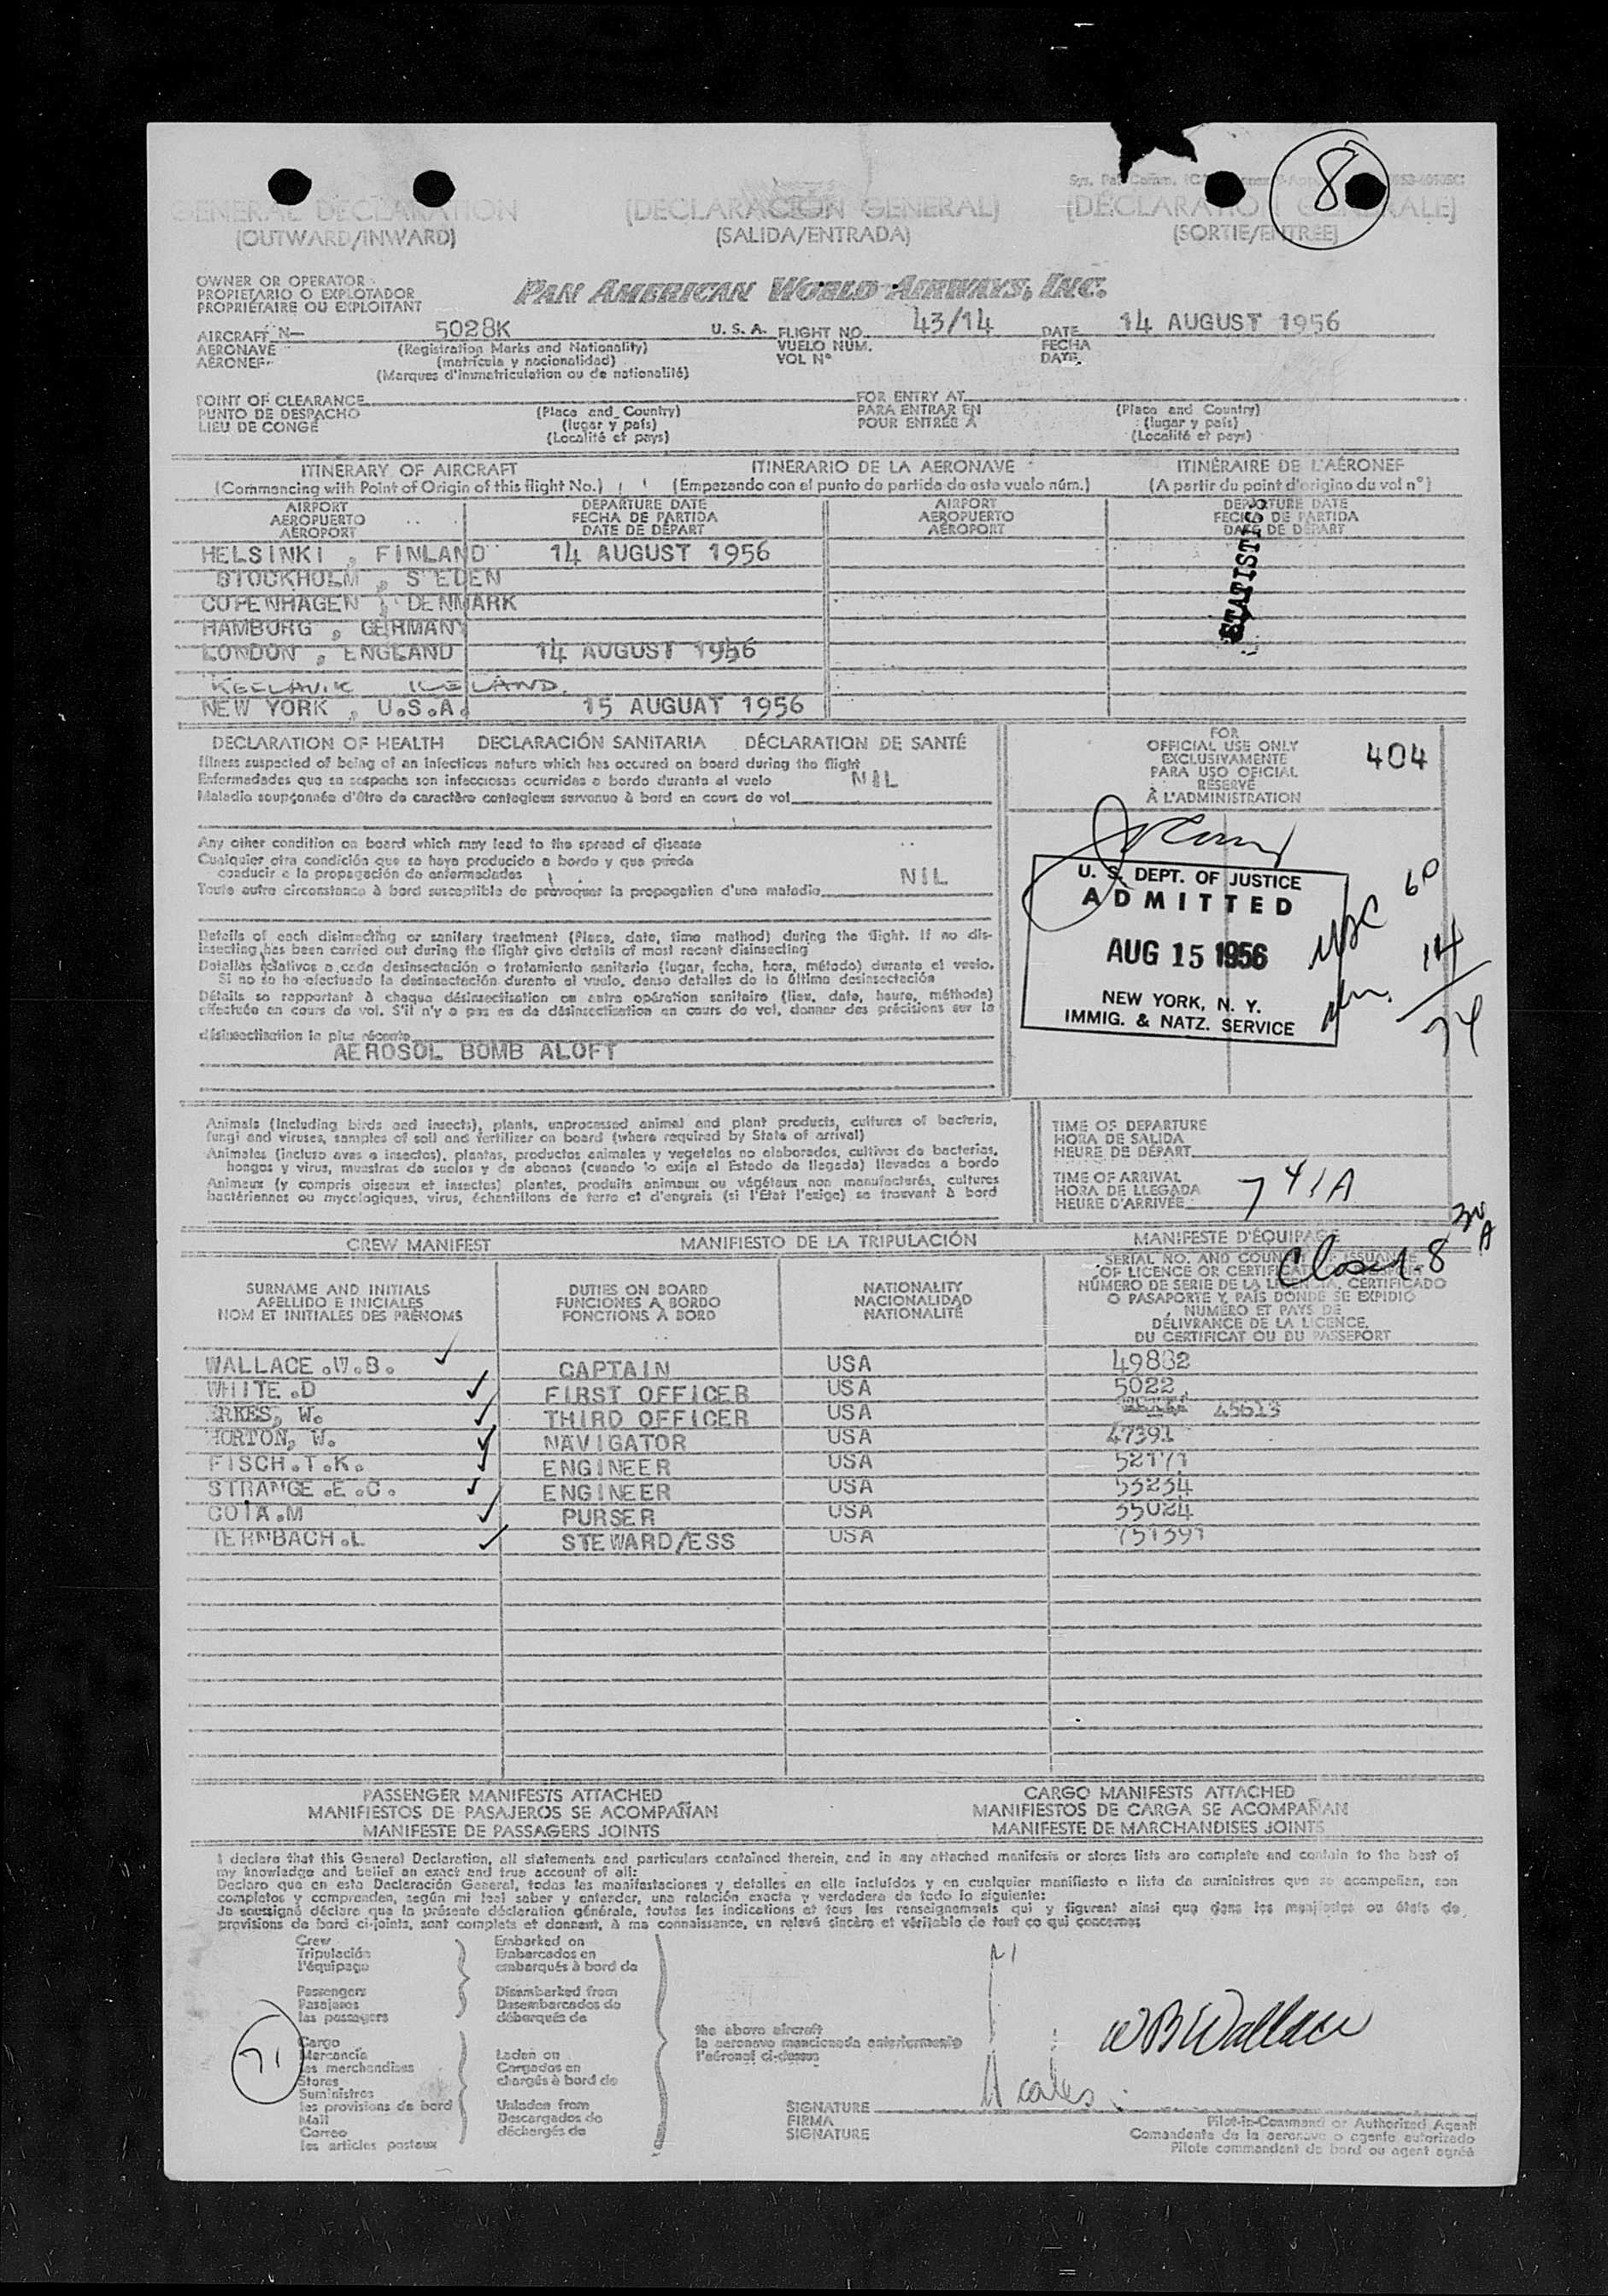 8
GENERAL DECLARATION (DECLARACIÓN GENERAL) (DÉCLARATION GÉNÉRALE)
(OUTWARD/INWARD) (SALIDA/ENTRADA) (SORTIE/ENTRÉE)
OWNER OR OPERATOR
PROPIETARIO O EXPLOTADOR PAN AMERICAN WORLD AIRWAYS, INC.
PROPRIÉTAIRE OU EXPLOITANT
AIRCRAFT N— 5028K U. S. A. FLIGHT NO. 43/14 DATE 14 AUGUST 1956
AERONAVE (Registration Marks and Nationality) VUELO NÚM. FECHA
AÉRONEF (matrícula y nacionalidad) VOL Nº DATE
(Marques d'immatriculation ou de nationalité)
POINT OF CLEARANCE FOR ENTRY AT
PUNTO DE DESPACHO (Place and Country) PARA ENTRAR EN (Place and Country)
LIEU DE CONGÉ (lugar y país) POUR ENTRÉE À (lugar y país)
(Localité et pays) (Localité et pays)
ITINERARY OF AIRCRAFT ITINERARIO DE LA AERONAVE ITINÉRAIRE DE L'AÉRONEF
(Commencing with Point of Origin of this flight No.) (Empezando con el punto de partida de este vuelo núm.) (A partir du point d'origine du vol nº)
AIRPORT DEPARTURE DATE AIRPORT DEPARTURE DATE
AEROPUERTO FECHA DE PARTIDA AEROPUERTO FECHA DE PARTIDA
AÉROPORT DATE DE DÉPART AÉROPORT DATE DE DÉPART
STATISTICS
HELSINKI , FINLAND 14 AUGUST 1956
STOCKHOLM , S EDEN
COPENHAGEN , DENMARK
HAMBURG , GERMANY
LONDON , ENGLAND 14 AUGUST 1956
KEFLAVIK ICELAND.
NEW YORK , U.S.A. 15 AUGUAT 1956
DECLARATION OF HEALTH DECLARACIÓN SANITARIA DÉCLARATION DE SANTÉ
Illness suspected of being of an infectious nature which has occured on board during the flight
Enfermedades que se sospecha son infecciosas ocurridas a bordo durante el vuelo NIL
Maladie soupçonnée d'être de caractère contagieux survenue à bord en cours de vol
Any other condition on board which may lead to the spread of disease
Cualquier otra condición que se haya producido a bordo y que pueda
conducir a la propagación de enfermedades
Toute autre circonstance à bord susceptible de provoquer la propagation d'une maladie NIL
Details of each disinsecting or sanitary treatment (Place, date, time method) during the flight. If no dis-
insecting has been carried out during the flight give details of most recent disinsecting
Detalles relativos a cada desinsectación o tratamiento sanitario (lugar, fecha, hora, método) durante el vuelo.
Si no se ha efectuado la desinsectación durante el vuelo, dense detalles de la última desinsectación
Détails se rapportant à chaque désinsectisation ou autre opération sanitaire (lieu, date, heure, méthode)
effectuée en cours de vol. S'il n'y a pas eu de désinsectisation en cours de vol, donner des précisions sur la
désinsectisation la plus récente
AEROSOL BOMB ALOFT
FOR
OFFICIAL USE ONLY 404
EXCLUSIVAMENTE
PARA USO OFICIAL
RÉSERVÉ
À L'ADMINISTRATION
U. S. DEPT. OF JUSTICE
ADMITTED
AUG 15 1956
NEW YORK, N. Y.
IMMIG. & NATZ. SERVICE
60
14
74
Animals (including birds and insects), plants, unprocessed animal and plant products, cultures of bacteria,
fungi and viruses, samples of soil and fertilizer on board (where required by State of arrival)
Animales (incluso aves e insectos), plantas, productos animales y vegetales no elaborados, cultivos de bacterias,
hongos y virus, muestras de suelos y de abonos (cuando lo exija el Estado de llegada) llevados a bordo
Animaux (y compris oiseaux et insectes) plantes, produits animaux ou végétaux non manufacturés, cultures
bactériennes ou mycologiques, virus, échantillons de terre et d'engrais (si l'État l'exige) se trouvant à bord
TIME OF DEPARTURE
HORA DE SALIDA
HEURE DE DÉPART
TIME OF ARRIVAL
HORA DE LLEGADA 7 41A
HEURE D'ARRIVÉE
CREW MANIFEST MANIFIESTO DE LA TRIPULACIÓN MANIFESTE D'ÉQUIPAGE
Closed 8
SURNAME AND INITIALS DUTIES ON BOARD NATIONALITY SERIAL NO. AND COUNTRY OF ISSUANCE
APELLIDO E INICIALES FUNCIONES A BORDO NACIONALIDAD OF LICENCE OR CERTIFICATE
NOM ET INITIALES DES PRÉNOMS FONCTIONS À BORD NATIONALITÉ NÚMERO DE SERIE DE LA LICENCIA, CERTIFICADO
O PASAPORTE Y PAÍS DONDE SE EXPIDIÓ
NUMÉRO ET PAYS DE
DÉLIVRANCE DE LA LICENCE,
DU CERTIFICAT OU DU PASSEPORT
WALLACE .W.B. ✓ CAPTAIN USA 49882
WHITE .D ✓ FIRST OFFICER USA 5022
ERKES, W. ✓ THIRD OFFICER USA 45613
HORTON, W. ✓ NAVIGATOR USA 47391
FISCH.T.K. ✓ ENGINEER USA 52171
STRANGE .E .C. ✓ ENGINEER USA 53234
COIA .M ✓ PURSER USA 35024
TERNBACH .L ✓ STEWARD/ESS USA 751391
PASSENGER MANIFESTS ATTACHED CARGO MANIFESTS ATTACHED
MANIFIESTOS DE PASAJEROS SE ACOMPAÑAN MANIFIESTOS DE CARGA SE ACOMPAÑAN
MANIFESTE DE PASSAGERS JOINTS MANIFESTE DE MARCHANDISES JOINTS
I declare that this General Declaration, all statements and particulars contained therein, and in any attached manifests or stores lists are complete and contain to the best of
my knowledge and belief an exact and true account of all:
Declaro que en esta Declaración General, todas las manifestaciones y detalles en ella incluídos y en cualquier manifiesto o lista de suministros que se acompañan, son
completos y comprenden, según mi leal saber y entender, una relación exacta y verdadera de todo lo siguiente:
Je soussigné déclare que la présente déclaration générale, toutes les indications et tous les renseignements qui y figurent ainsi que dans les manifestes ou états de
provisions de bord ci-joints, sont complets et donnent, à ma connaissance, un relevé sincère et véritable de tout ce qui concerne:
Crew Embarked on
Tripulación Embarcados en
l'équipage embarqués à bord de
Passengers Disembarked from
Pasajeros Desembarcados de
les passagers débarqués de
71
Cargo
Mercancía Laden on
les merchandises Cargados en
Stores chargés à bord de
Suministros
les provisions de bord Unladen from
Mail Descargados de
Correo déchargés de
les articles postaux
the above aircraft
la aeronave mencionada anteriormente
l'aéronef ci-dessus
W B Wallace
SIGNATURE
FIRMA Pilot-in-Command or Authorized Agent
SIGNATURE Comandante de la aeronave o agente autorizado
Pilote commandant de bord ou agent agréé